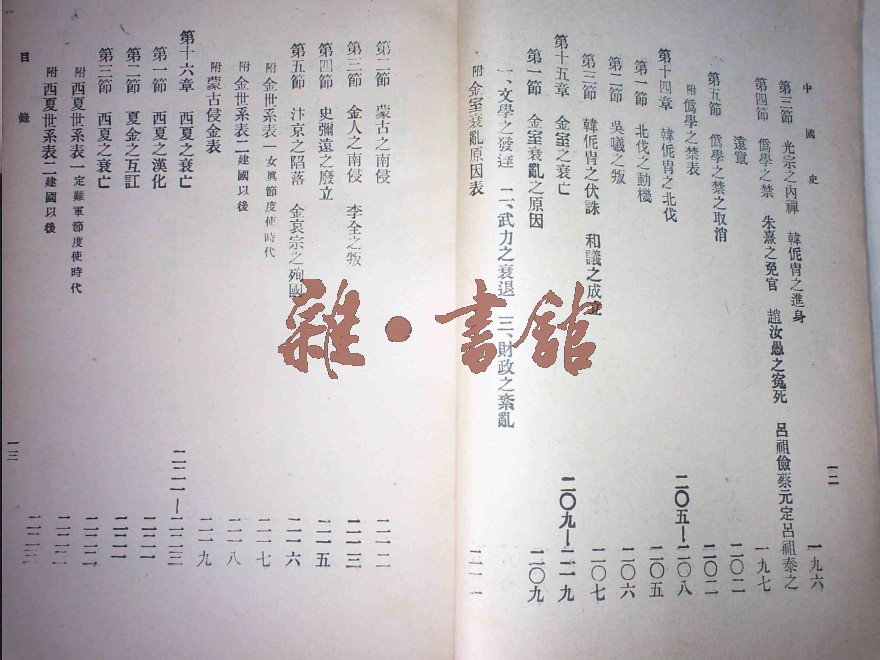 中國史
一二
第三節 光宗之內禪 韓侂胄之進身 一九六
第四節 僞學之禁 朱熹之免官 趙汝愚之寃死 呂祖儉蔡元定呂祖泰之
遠竄 一九七
第五節 僞學之禁之取消 二〇二
附 僞學之禁表 二〇二
第十四章 韓侂胄之北伐 二〇五—二〇八
第一節 北伐之動機 二〇五
第二節 吳曦之叛 二〇六
第三節 韓侂胄之伏誅 和議之成立 二〇七
第十五章 金室之衰亡 二〇九—二一九
第一節 金室衰亂之原因 二〇九
一、文學之發達 二、武力之衰退 三、財政之紊亂
附 金室衰亂原因表 二一一
第二節 蒙古之南侵 二一二
第三節 金人之南侵 李全之叛 二一三
第四節 史彌遠之廢立 二一五
第五節 汴京之陷落 金哀宗之殉國 二一六
附 金世系表一 女眞節度使時代 二一七
附 金世系表二 建國以後 二一八
附 蒙古侵金表 二一九
第十六章 西夏之衰亡 二二一—二二三
第一節 西夏之漢化 二二一
第二節 夏金之互訌 二二一
第三節 西夏之衰亡 二二二
附 西夏世系表一 定難軍節度使時代 二二二
附 西夏世系表二 建國以後 二二三
目錄
一三
雜·書館